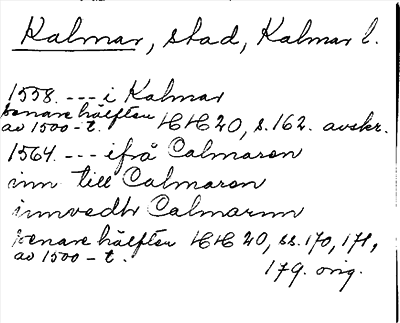 Kalmar, stad, Kalmar l.
1558. --- i Kalmar
senare hälften
av 1500-t. HH 20, s. 162. avskr.
1564. --- ifrå Calmaren
inn till Calmaren
innvedh Calmarnn
senare hälften HH 20, ss. 170, 171,
av 1500-t. 179. orig.